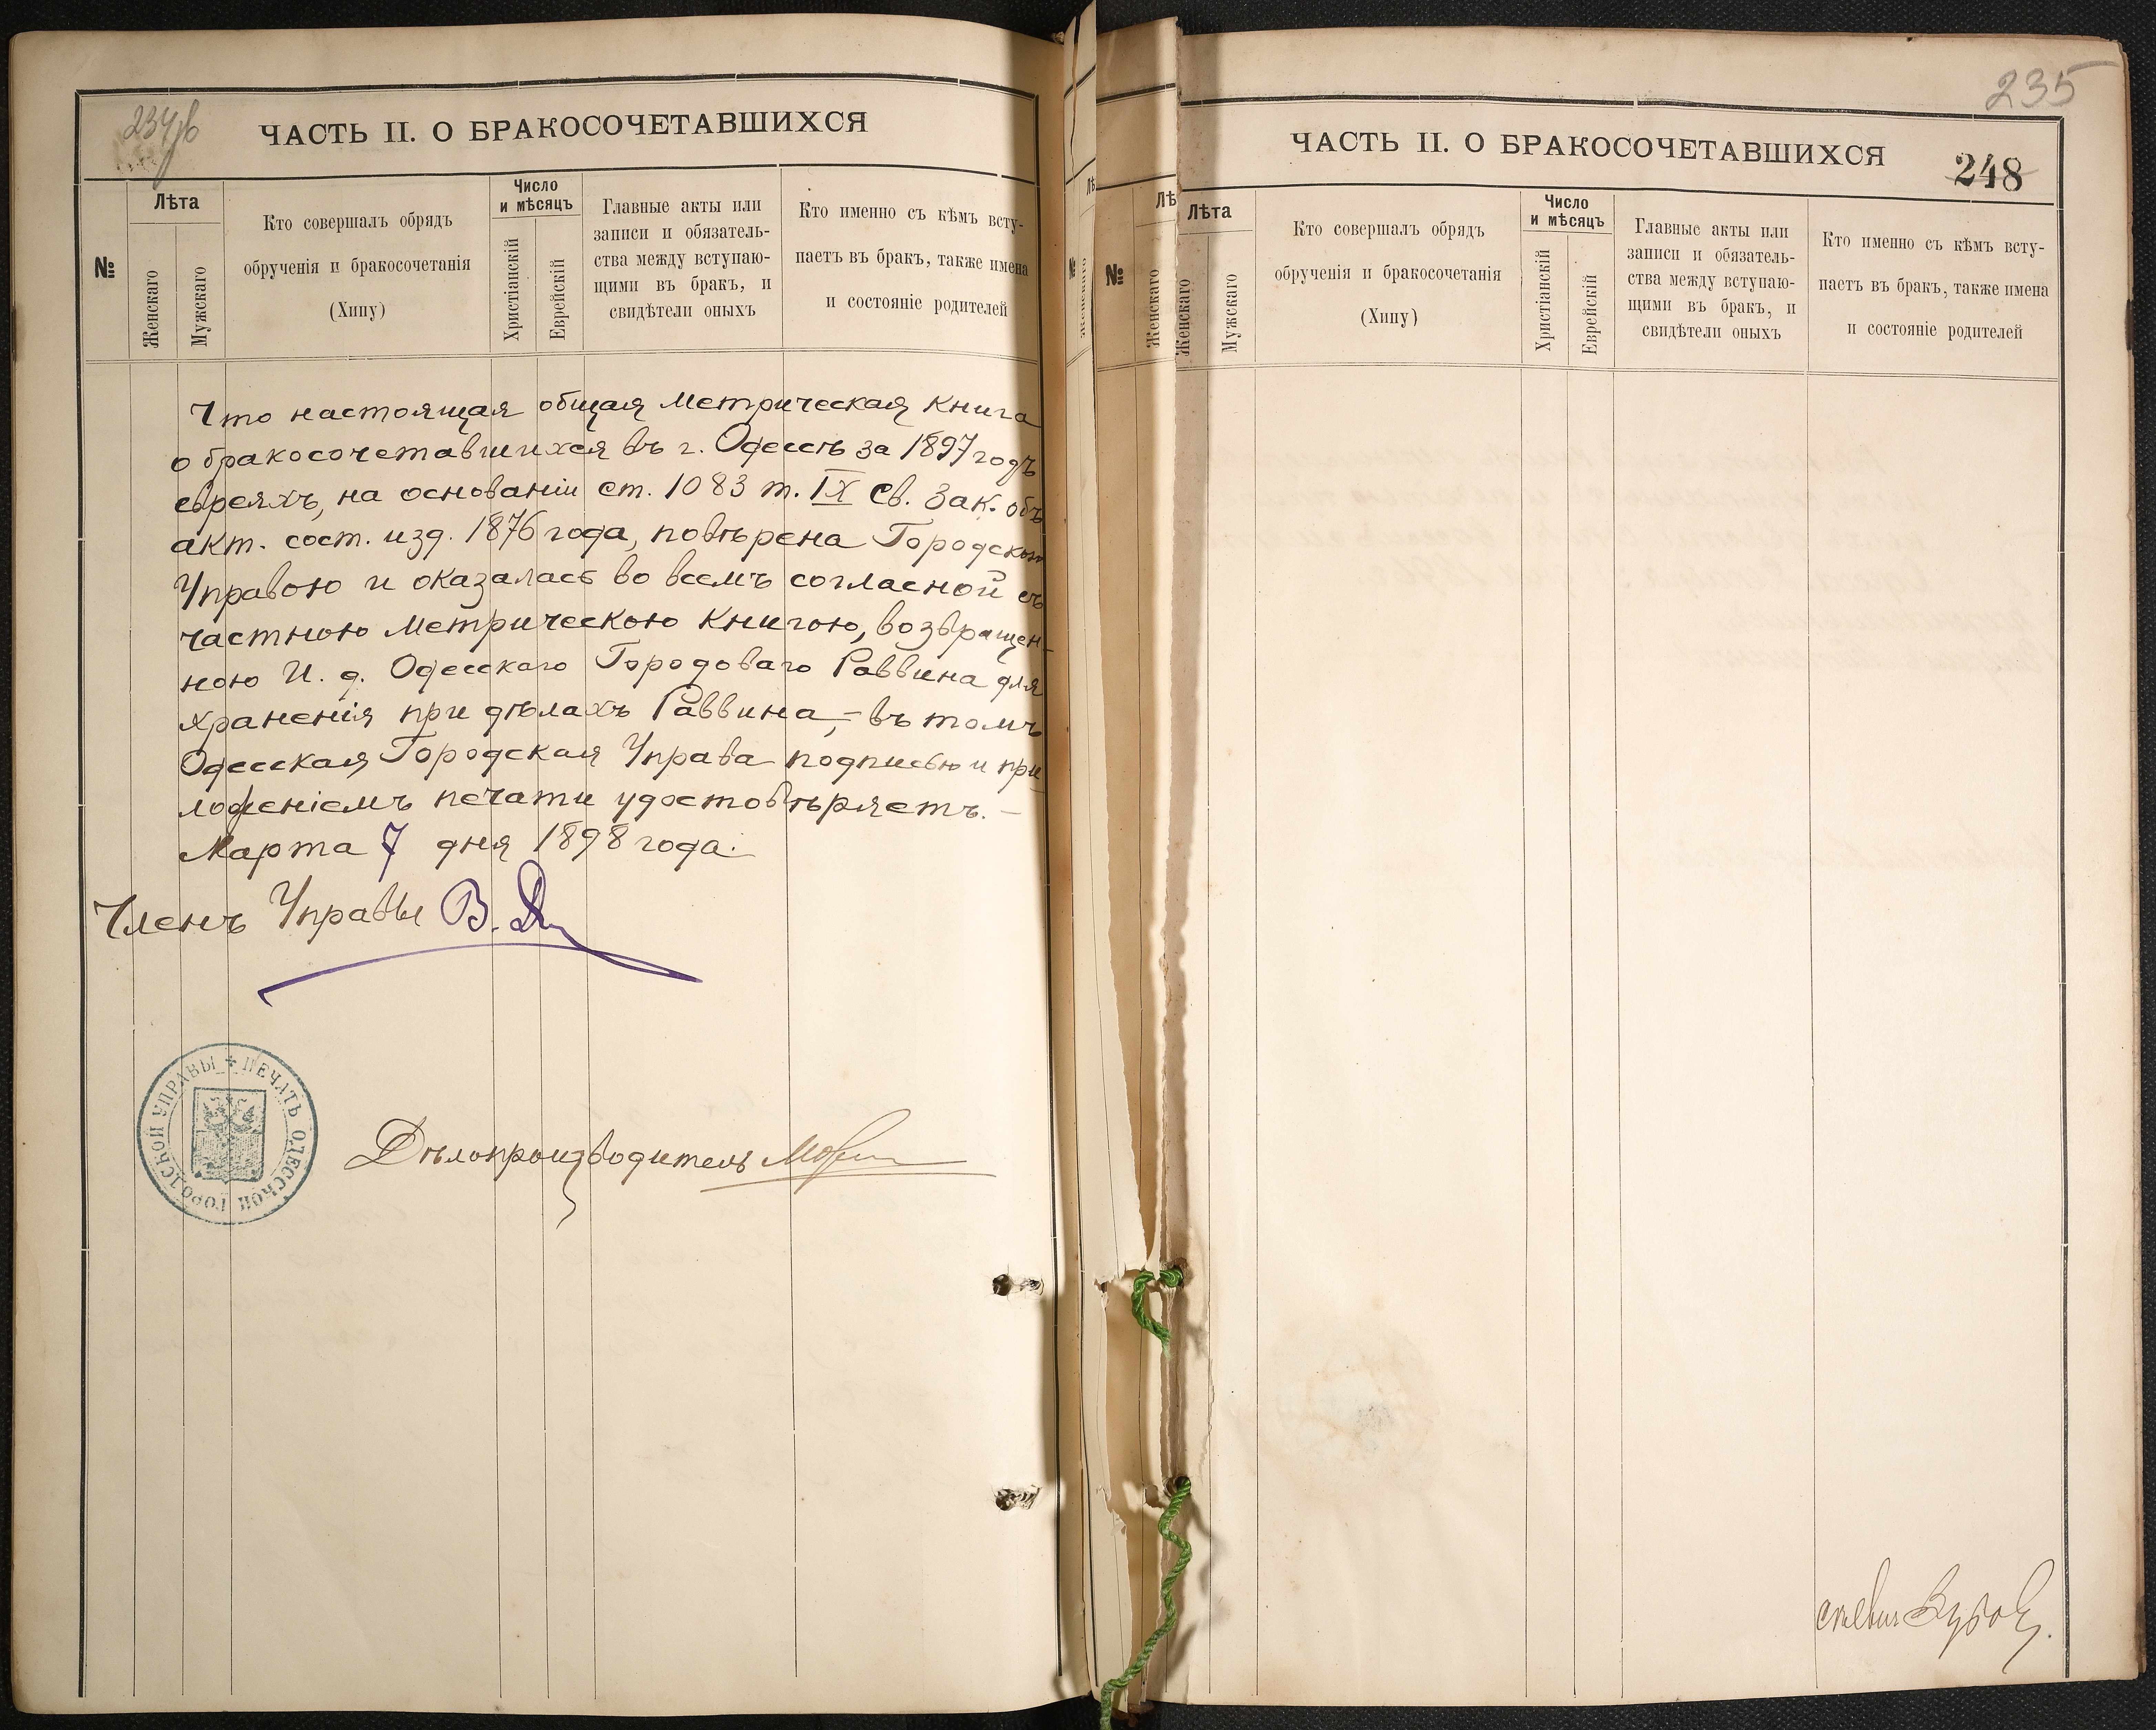 234об
ЧАСТЬ II. О БРАКОСОЧЕТАВШИХСЯ
№
Лѣта
Женскаго
Мужскаго
Кто совершалъ обрядъ
обрученія и бракосочетанія
(Хипу)
Число
и мѣсяцъ
Христіанскій
Еврейскій
Главные акты или
записи и обязатель-
ства между вступаю-
щими въ бракъ, и
свидѣтели оныхъ
Кто именно съ кѣмъ всту-
паетъ въ бракъ, также имена
и состояніе родителей
Что настоящая общая метрическая книга
о бракосочетавшихся въ г. Одессѣ за 1897 годъ
евреяхъ, на основаніи ст. 1083 т. IX Св. Зак. объ
акт. сост. изд. 1876 года, повѣрена Городскою
Управою и оказалась во всемъ согласной съ
частною метрическою книгою, возвращен-
ною И. д. Одесскаго Городоваго Раввина для
храненія при дѣлахъ Раввина,- въ томъ
Одесская Городская Управа подписью и при-
ложеніемъ печати удостовѣряетъ. -
Марта 7 дня 1898 года.
Членъ Управы В.
ПЕЧАТЬ ОДЕССКОЙ ГОРОДСКОЙ УПРАВЫ
Дѣлопроизводитель
Лѣ
№
Женскаго
Лѣ
№
Женскаго
235
ЧАСТЬ II. О БРАКОСОЧЕТАВШИХСЯ
248
Лѣта
Женскаго
Мужскаго
Кто совершалъ обрядъ
обрученія и бракосочетанія
(Хипу)
Число
и мѣсяцъ
Христіанскій
Еврейскій
Главные акты или
записи и обязатель-
ства между вступаю-
щими въ бракъ, и
свидѣтели оныхъ
Кто именно съ кѣмъ всту-
паетъ въ бракъ, также имена
и состояніе родителей